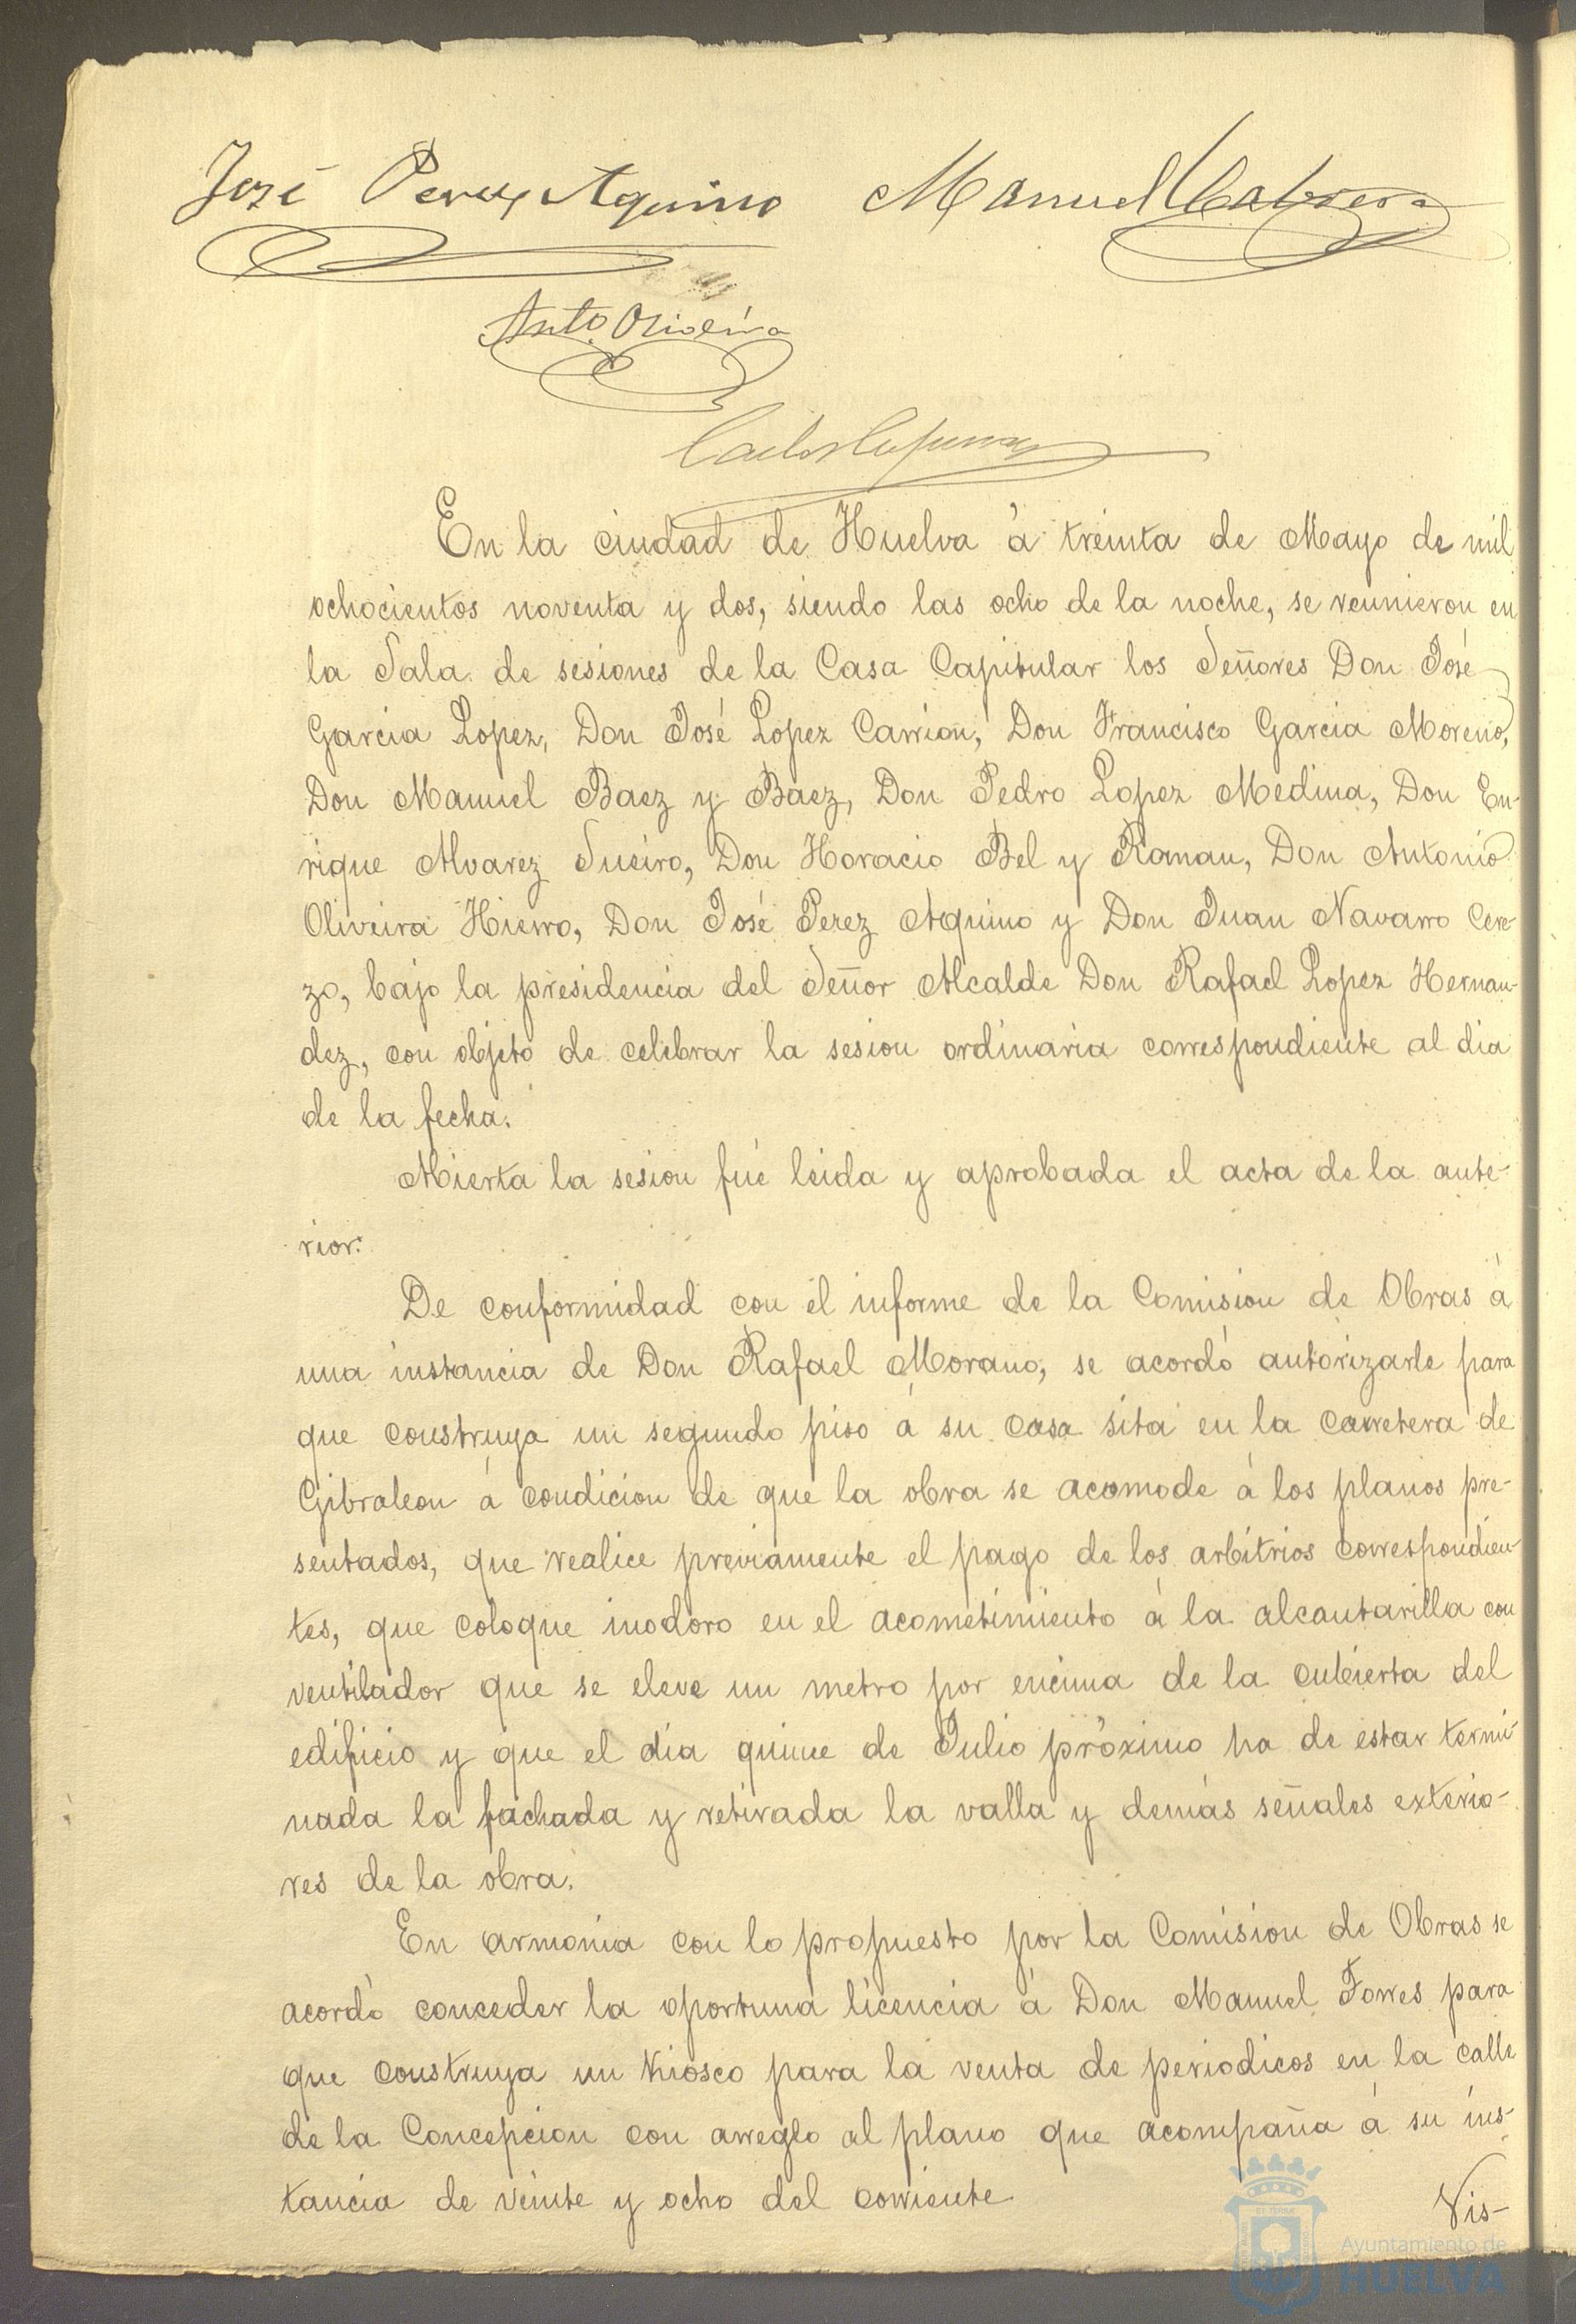 José Perez Aquino Manuel Cabrera
Anto. Oliveira
Carlos
En la ciudad de Huelva á treinta de Mayo de mil
ochocientos noventa y dos, siendo las ocho de la noche, se reunieron en
la Sala de sesiones de la Casa Capitular los Señores Don José
Garcia Lopez, Don José Lopez Carrion, Don Francisco Garcia Moreno,
Don Manuel Baez y Baez, Don Pedro Lopez Medina, Don En-
rique Alvarez Sueiro, Don Horacio Bel y Roman, Don Antonio
Oliveira Hierro, Don José Perez Aquino y Don Juan Navarro Cere-
zo, bajo la presidencia del Señor Alcalde Don Rafael Lopez Hernan-
dez, con objeto de celebrar la sesion ordinaria correspondiente al dia
de la fecha.
Abierta la sesion fué leida y aprobada el acta de la ante-
rior.
De conformidad con el informe de la Comision de Obras á
una instancia de Don Rafael Morano, se acordó autorizarle para
que construya un segundo piso á su casa sita en la carretera de
Gibraleon á condicion de que la obra se acomode á los planos pre-
sentados, que realice previamente el pago de los arbitrios correspondien-
tes, que coloque inodoro en el acometimiento á la alcantarilla con
ventilador que se eleve un metro por encima de la cubierta del
edificio y que el dia quince de Julio próximo ha de estar termi-
nada la fachada y retirada la valla y demás señales exterio-
res de la obra.
En armonia con lo propuesto por la Comision de Obras se
acordó conceder la oportuna licencia á Don Manuel Torres para
que construya un kiosco para la venta de periodicos en la calle
de la Concepcion con arreglo al plano que acompaña á su ins-
tancia de veinte y ocho del corriente
Vis-
Ayuntamiento de
HUELVA